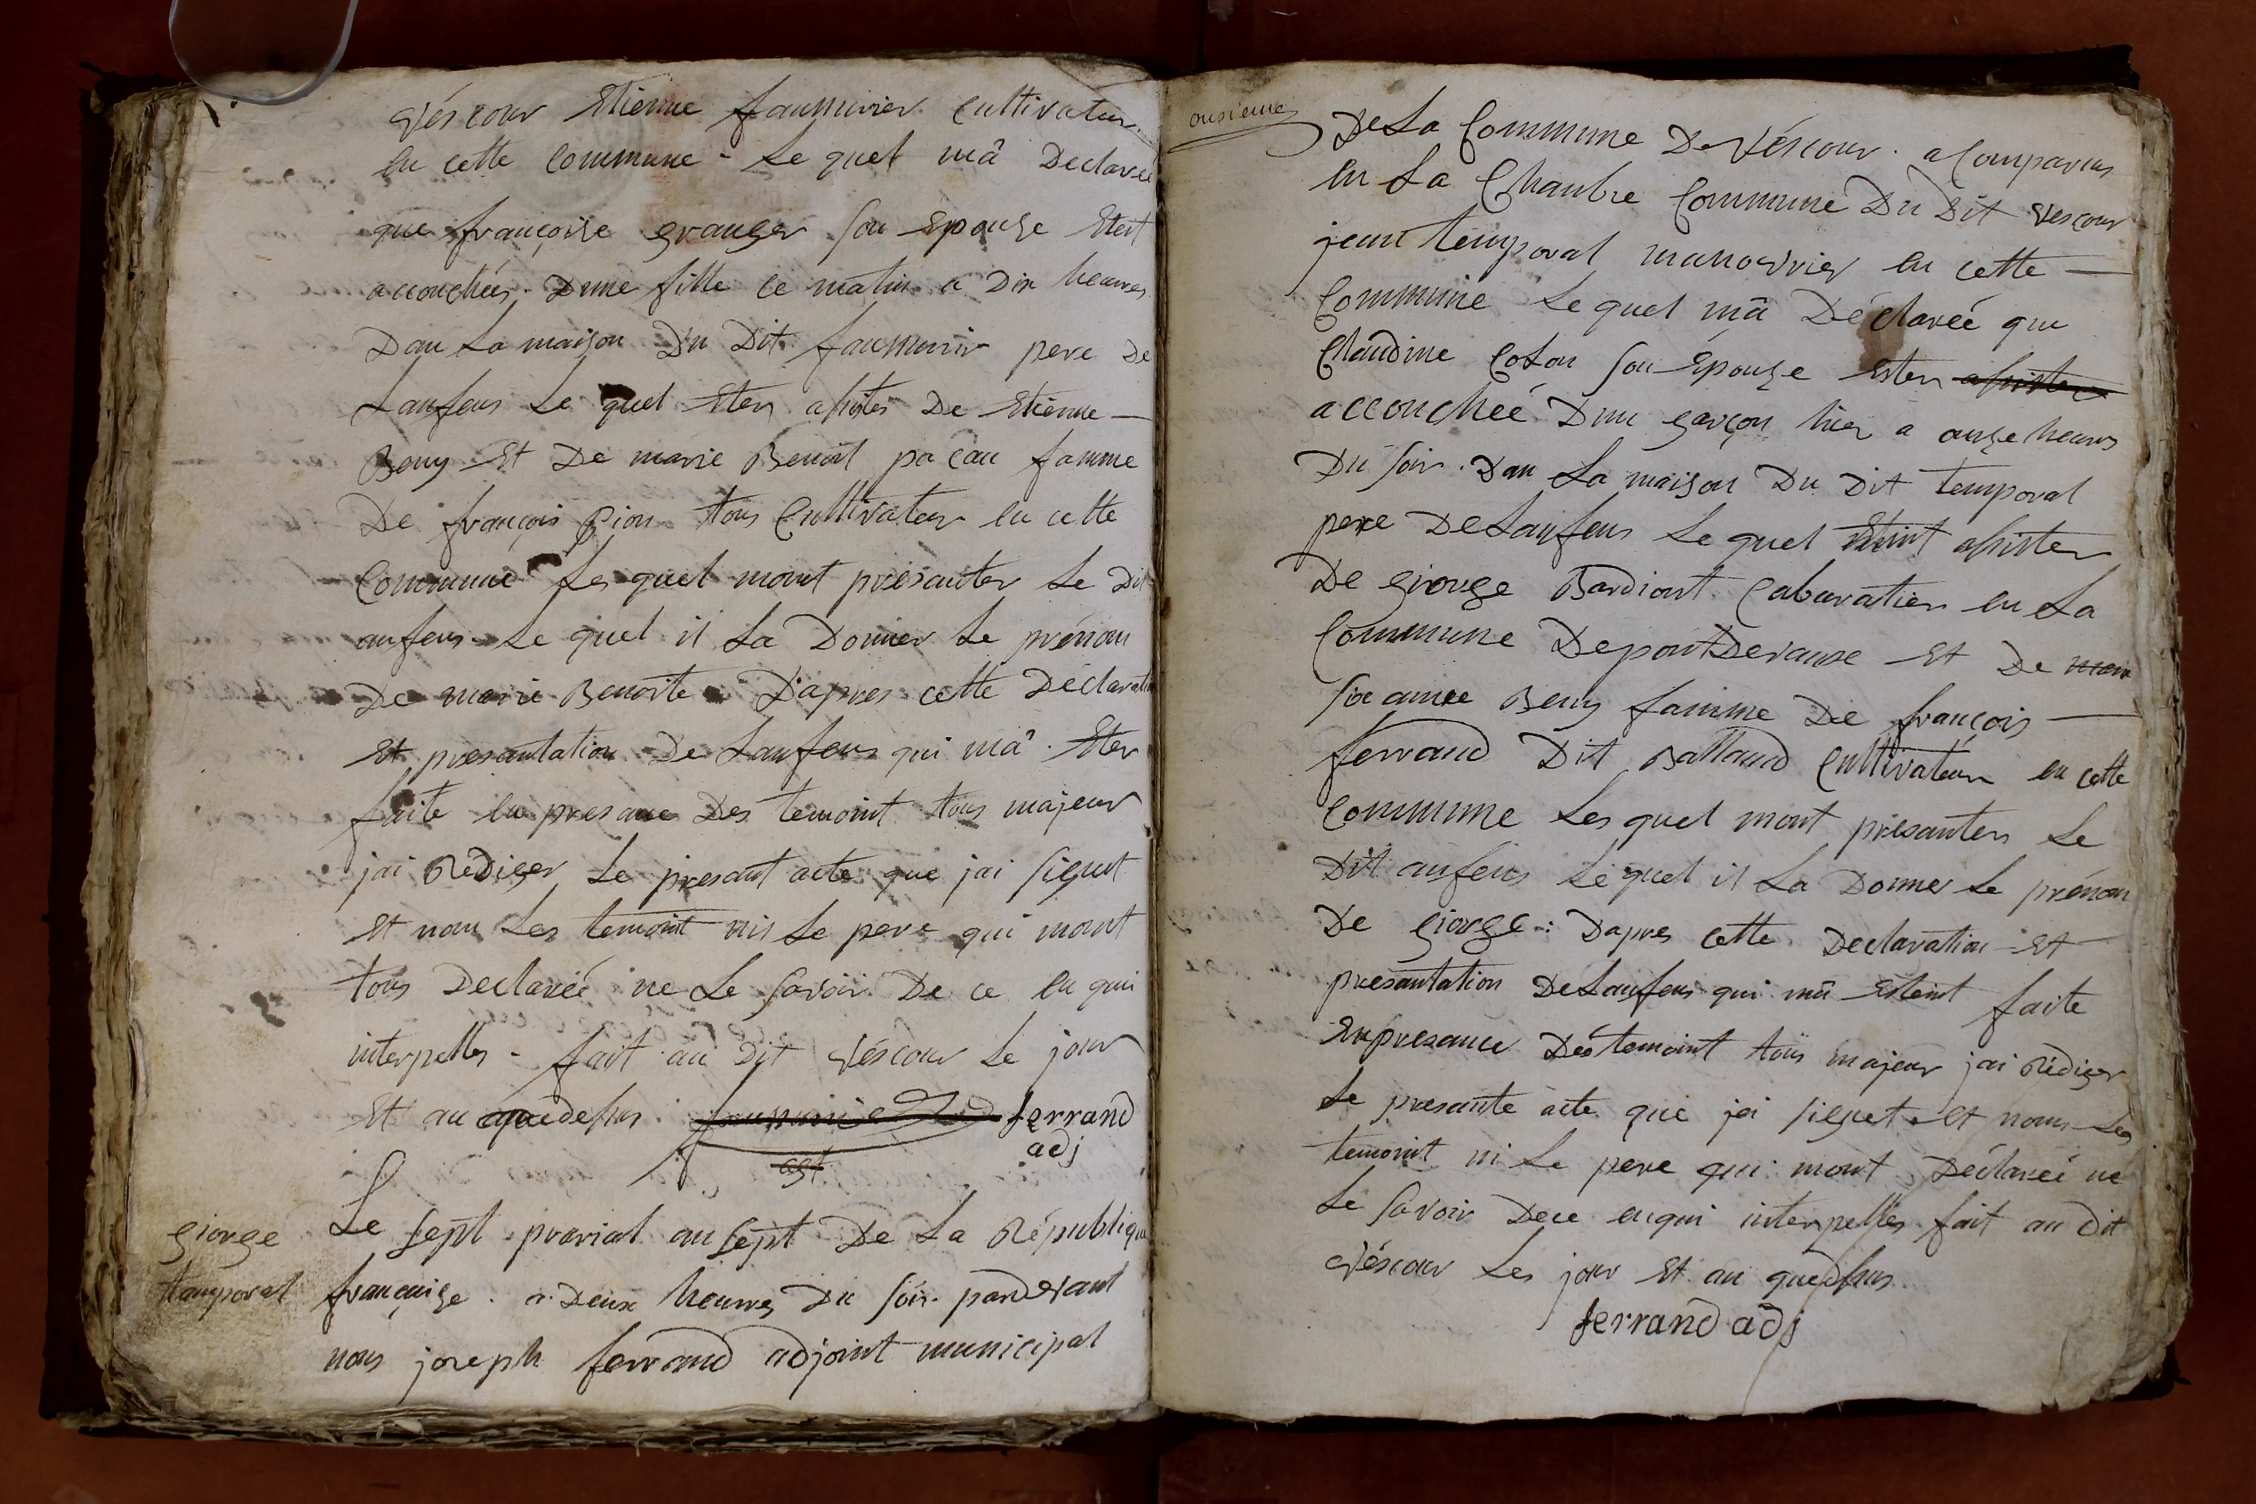 véscour Etienne faumurier Cultivateur
en cette Commune - Le quel mâ Declareé
que françoise granger son Epouse Eteit
accouchéés D'une fille ce matin a Dix heures
Dan La maison Du Dit faumurir pere De
Lanfens Le quel Eter assister De Etienne -
Beny Et De marie Benoit pacau famme
De françois Pion tous Cultivateur en cette
Commune Les quel mont présanter Le Dit
anfens Le quel il La Donner Le prénom
De marie Benoite D'apres cette Déclaration
Et presantation De Lanfens qui mâ Eter
faite en presance Des temoint tous majeur
jai Rediger Le presant acte que jai signt
Et nom Les temoint nis Le pere qui mont
tous Declareé ne Le savoir De ce en qui
interpelles - fait au Dit Véscour Le jour
Et an quedessus ferrand
adj
giorge
tamporal
Le sept prerial an sept De La Républiqu
françaige . a Deux heures Du soir pardevant
nous joseph ferrand adjoint municipal
onsieme
De La Commune De Véscour . a Comparus
en La Chanbre Commune Du Dit Vescour
jean temporal manovrier en cette -
Commune Le quel mâ Déclareé que
Claudine Coton son Epouse Eter assister
accoucheé D'un garçon hier a onze heures
Du soir . Dan La maison Du Dit temporal
pere De Lanfens Le quel Etint assister
De giorge Bardiont Cabaratier en La
Commune De pont De vause Et De mari
Beny famme De françois -
ferrand Dit Balland Cultivateur en cette
Commune Les quel mont présanter Le
Dit anfens Le quel il La Donner Le prénom
De giorge : Dapres cette Declaration Et
presantation De Lanfens qui mâ Eteint faite
En presance Des temoint tous majeur jai Rédiger
Le presante acte que jai signet Et nom Les
temoint ni Le pere qui mont Déclareé ne
Le savoir De ce en qui interpelles fait au Dit
Véscour Les jour Et an quedssus
ferrand adj